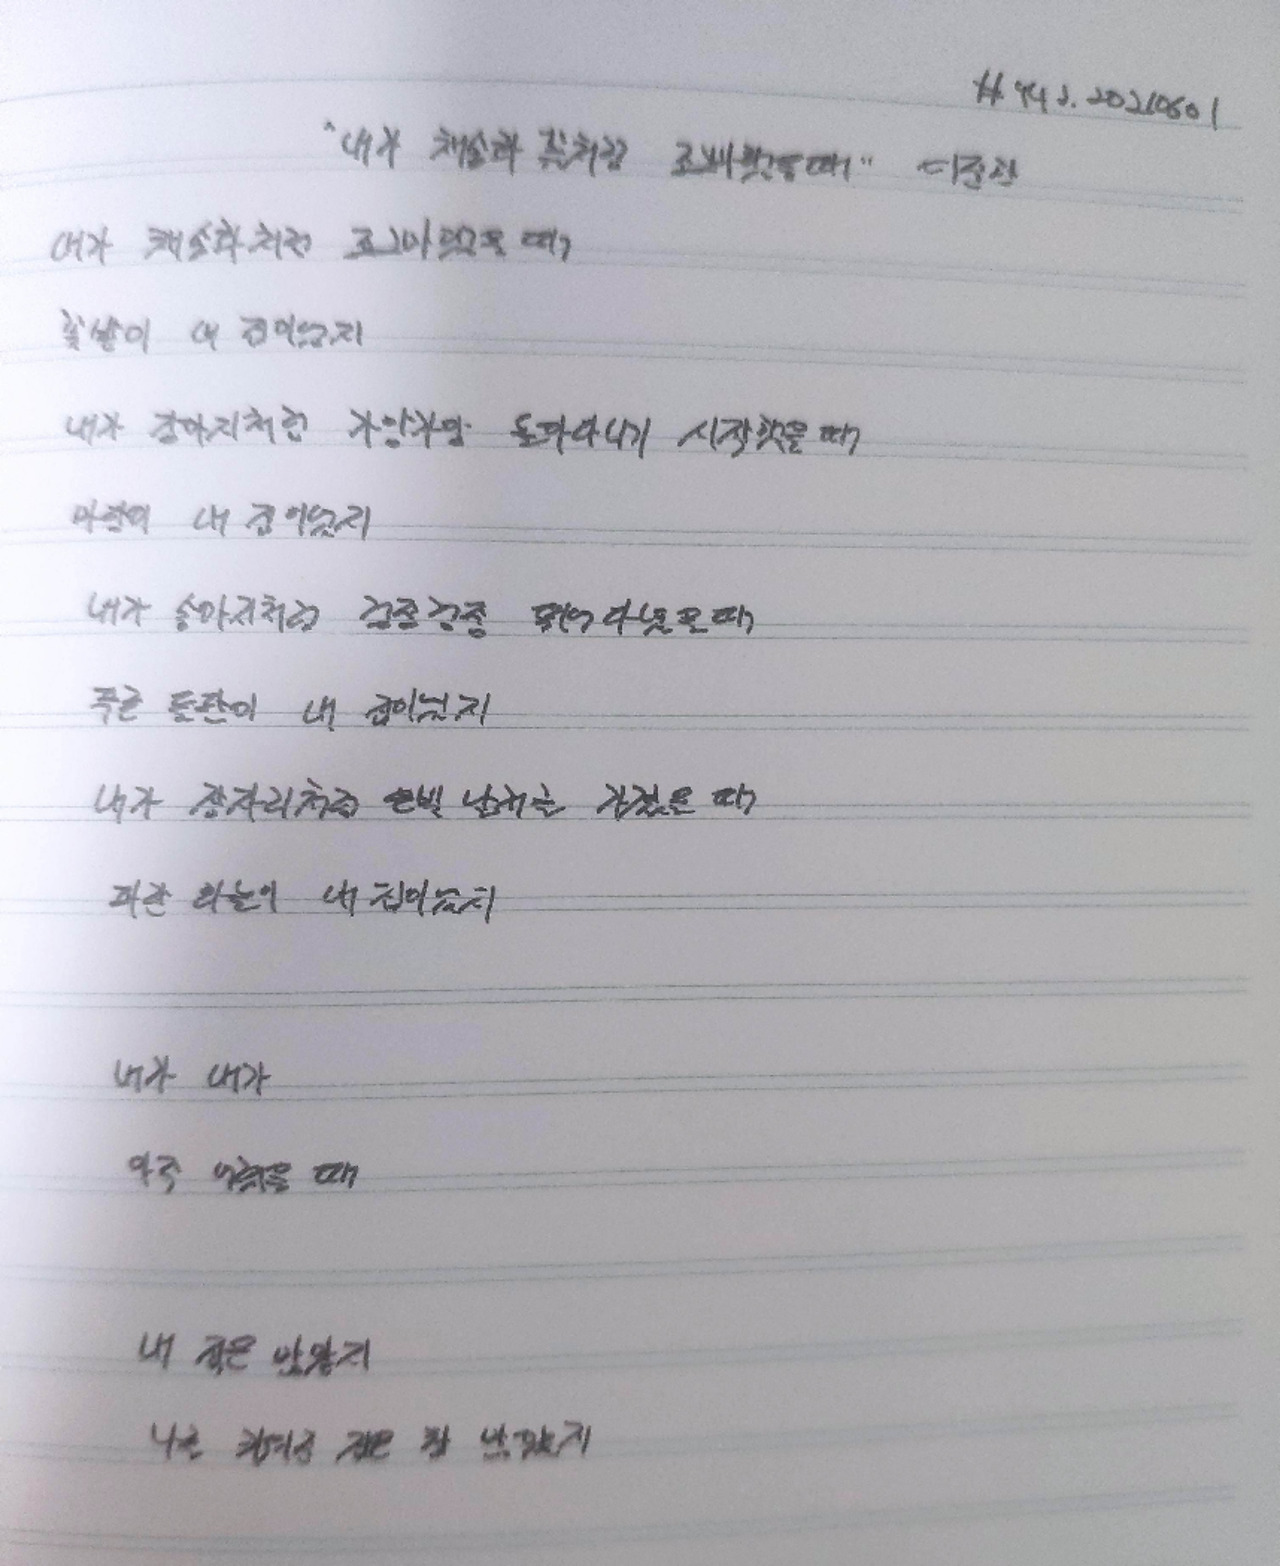 #442. 20210601
"내가 채송화 꽃처럼 조그마했을 때" 이준관
내가 채송화처럼 조그마했을 때
꽃밭이 내 집이었지
내가 강아지처럼 가앙가앙 돌아다니기 시작했을 때
마당이 내 집이었지
내가 송아지처럼 겅중겅중 뛰어다녔을 때
푸른 들판이 내 집이었지
내가 잠자리처럼 은빛 날개를 가졌을 때
파란 하늘이 내 집이었지
내가 내가
아주 어렸을 때
내 집은 많았지
나를 키워준 집은 참 많았지